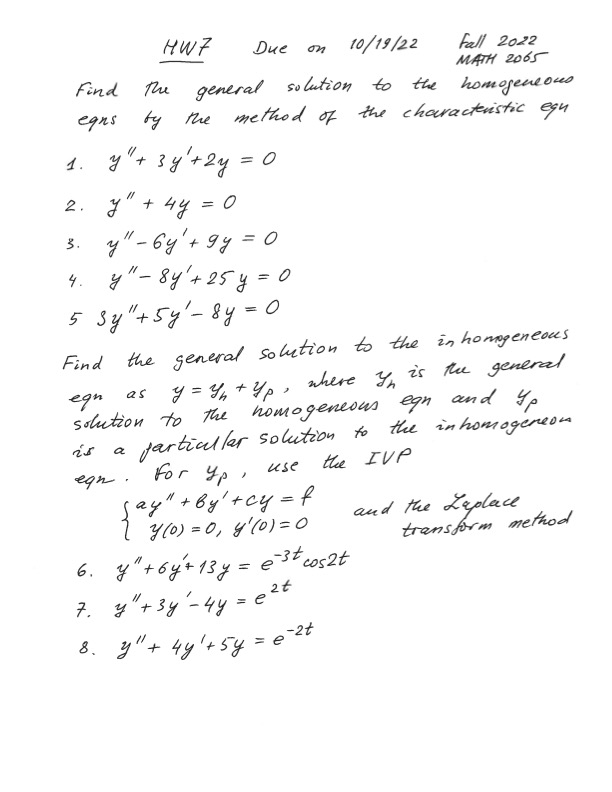 HW7 Due on 10/19/22 Fall 2022
MATH 2065
Find the general solution to the homogeneous
eqns by the method of the characteristic eqn
1. y'' + 3y' + 2y = 0
2. y'' + 4y = 0
3. y'' - 6y' + 9y = 0
4. y'' - 8y' + 25y = 0
5 3y'' + 5y' - 8y = 0
Find the general solution to the inhomogeneous
eqn as y = y_h + y_p, where y_h is the general
solution to the homogeneous eqn and y_p
is a particular solution to the inhomogeneous
eqn. For y_p, use the IVP
{ ay'' + by' + cy = f
y(0) = 0, y'(0) = 0 and the Laplace
transform method
6. y'' + 6y' + 13y = e^{-3t} cos2t
7. y'' + 3y' - 4y = e^{2t}
8. y'' + 4y' + 5y = e^{-2t}